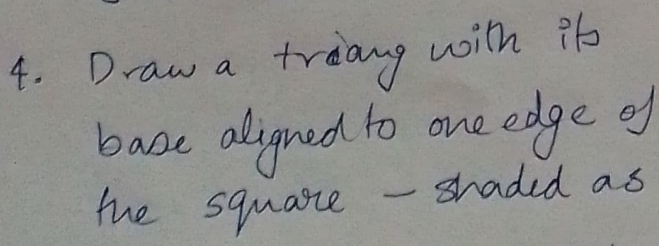 4. Draw a triang with its
base aligned to one edge of
the square - shaded as